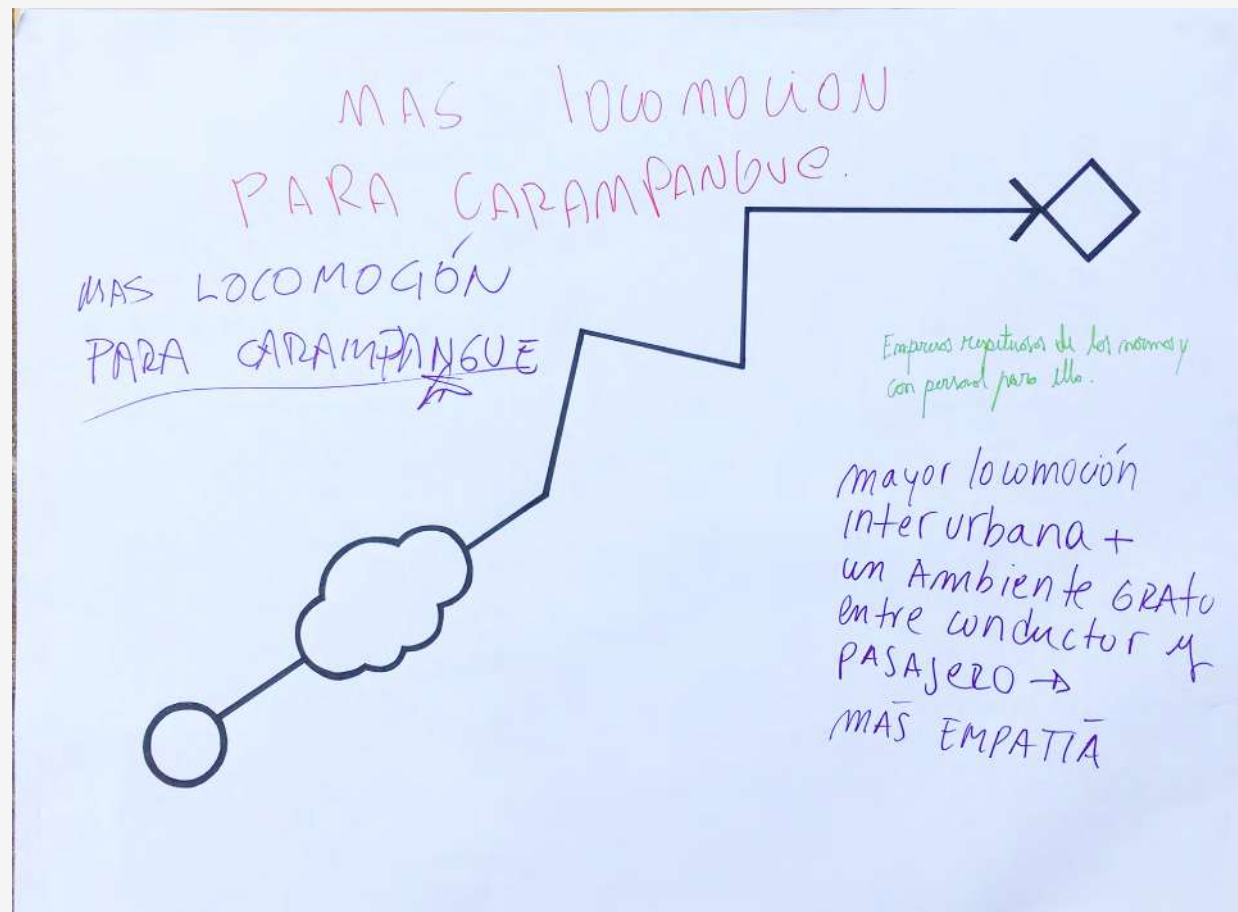 MAS lOCOMOCION
PARA CARAMPANGUE.
MAS LOCOMOCIÓN
PARA CARAMPANGUE
Empresas respetuosas de las normas y
con personal para ello.
mayor locomoción
interurbana +
un Ambiente GRAto
entre conductor y
PASAJeRO →
MAS EMPATIA